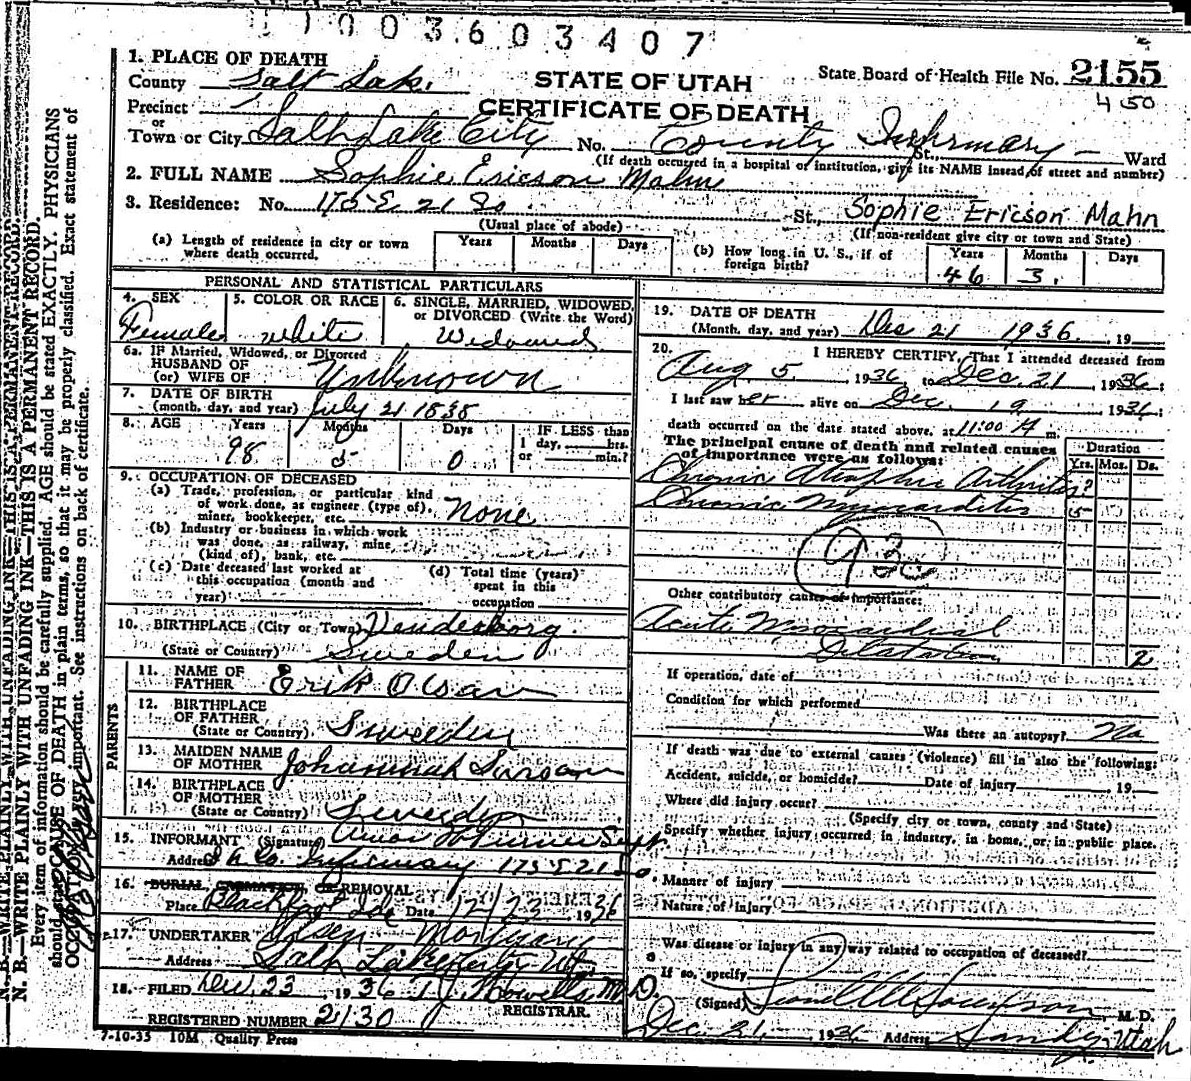 11003603407
1. PLACE OF DEATH
County Salt Lake.
STATE OF UTAH
State Board of Health File No. 2155
450
Precinct
or
CERTIFICATE OF DEATH
Town or City Salt Lake City No. County Infirmary - St., Ward
(If death occurred in a hospital or institution, give its NAME instead of street and number)
2. FULL NAME Sophie Ericson Mahn
3. Residence: No. 175 E 21 So. St., Sophie Ericson Mahn
(Usual place of abode) (If non-resident give city or town and State)
(a) Length of residence in city or town where death occurred. Years Months Days
(b) How long in U. S., if of foreign birth? Years Months Days
46 3.
PERSONAL AND STATISTICAL PARTICULARS
4. SEX 5. COLOR OR RACE 6. SINGLE, MARRIED, WIDOWED, or DIVORCED (Write the Word)
Female white Widowed
6a. IF Married, Widowed, or Divorced
HUSBAND OF
(or) WIFE OF Unknown
7. DATE OF BIRTH
(month, day, and year) July 21 1838
8. AGE Years Months Days IF LESS than
1 day, hrs.
or min.?
98 5 0
9. OCCUPATION OF DECEASED
(a) Trade, profession, or particular kind
of work done, as engineer (type of),
miner, bookkeeper, etc. None
(b) Industry or business in which work
was done, as railway, mine
(kind of), bank, etc.
(c) Date deceased last worked at
this occupation (month and
year)
(d) Total time (years)
spent in this
occupation
10. BIRTHPLACE (City or Town)
(State or Country) Sweden
PARENTS
11. NAME OF
FATHER Erik Olsan
12. BIRTHPLACE
OF FATHER
(State or Country) Sweden
13. MAIDEN NAME
OF MOTHER Johannah
14. BIRTHPLACE
OF MOTHER
(State or Country) Sweden
15. INFORMANT (Signature) Turner Supt.
Address S. L. Co. Infirmary 175 E 21 So
16. BURIAL, CREMATION, OR REMOVAL
Place Blackfoot Ida Date 12/23 1936
17. UNDERTAKER Mortuary
Address Salt Lake City Ut.
18. FILED Dec. 23 1936 T. J. Howells M.D.
REGISTRAR.
REGISTERED NUMBER 2130
7-10-35 10M Quality Press
19. DATE OF DEATH
(Month, day, and year) Dec 21 1936 19
20. I HEREBY CERTIFY, That I attended deceased from
Aug 5 1936 to Dec. 21 1936;
I last saw her alive on Dec. 19 1936;
death occurred on the date stated above, at 11:00 A m.
The principal cause of death and related causes
of importance were as follows:
Duration
Yrs. Mos. Ds.
Chronic Atrophic Arthritis ?
Chronic Myocarditis 5
93c
Other contributory causes of importance:
Acute Myocardial
Dilatation 2
If operation, date of
Condition for which performed
Was there an autopsy? No
If death was due to external causes (violence) fill in also the following:
Accident, suicide, or homicide? Date of injury 19
Where did injury occur?
(Specify city or town, county and State)
Specify whether injury occurred in industry, in home, or in public place.
Manner of injury
Nature of injury
Was disease or injury in any way related to occupation of deceased?
If so, specify
(Signed) M. D.
Dec 21, 1936 Address Sandy, Utah
N. B.—WRITE PLAINLY WITH UNFADING INK—THIS IS A PERMANENT RECORD.
Every item of information should be carefully supplied. AGE should be stated EXACTLY. PHYSICIANS
should state CAUSE OF DEATH in plain terms, so that it may be properly classified. Exact statement of
OCCUPATION is very important. See instructions on back of certificate.